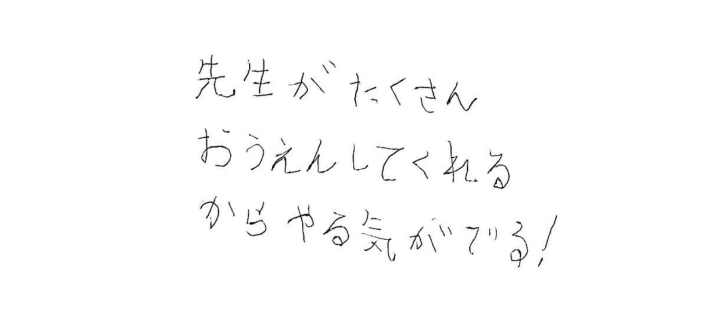 先生がたくさん
おうえんしてくれる
からやる気がでる!